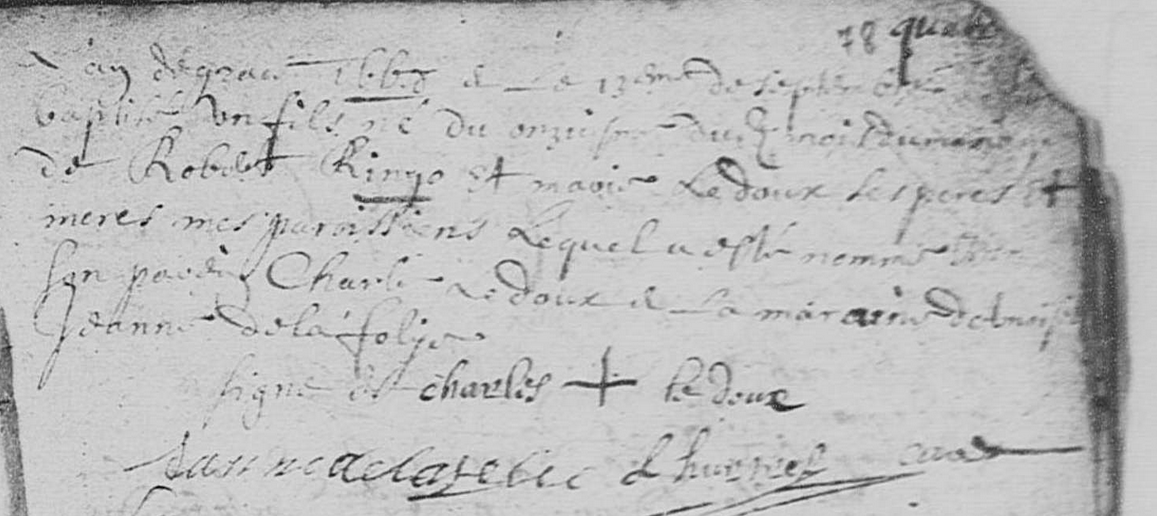 78 quat
L'an de grace 166 & le 13eme de septembre
baptisé un fils né du onziesme dud mois du mariage
de Robert Ringo et marie Ledoux ses peres et
meres mes paroissiens Lequel a esté nommé
son parein Charle Ledoux & La maraine
Jeanne de la folie
signe de charles + le doux
Jeanne de la folie Lhuernel curé